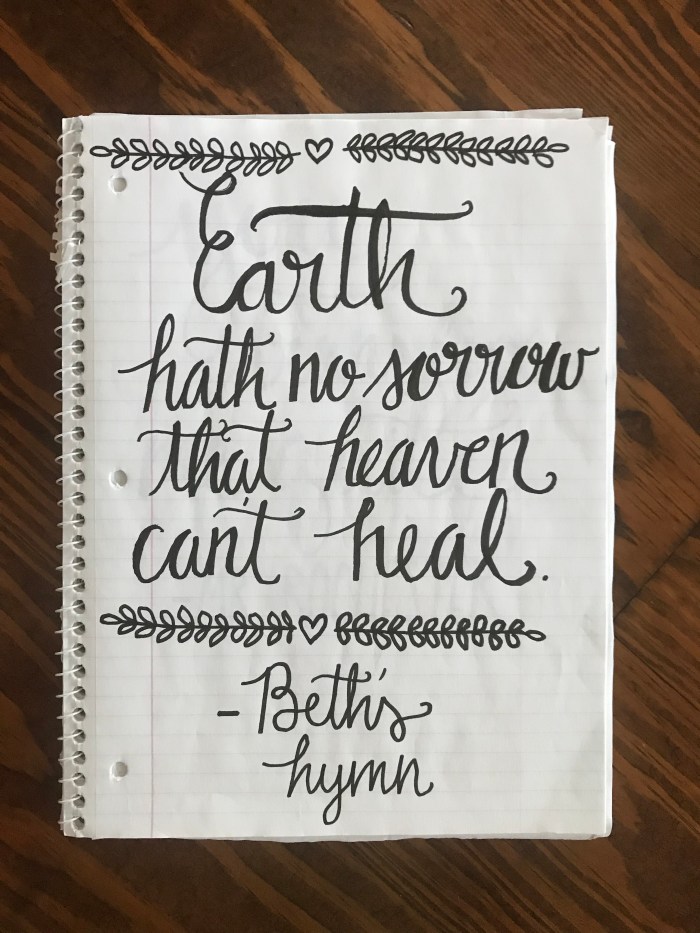 Earth
hath no sorrow
that heaven
can't heal.
- Beth's
hymn